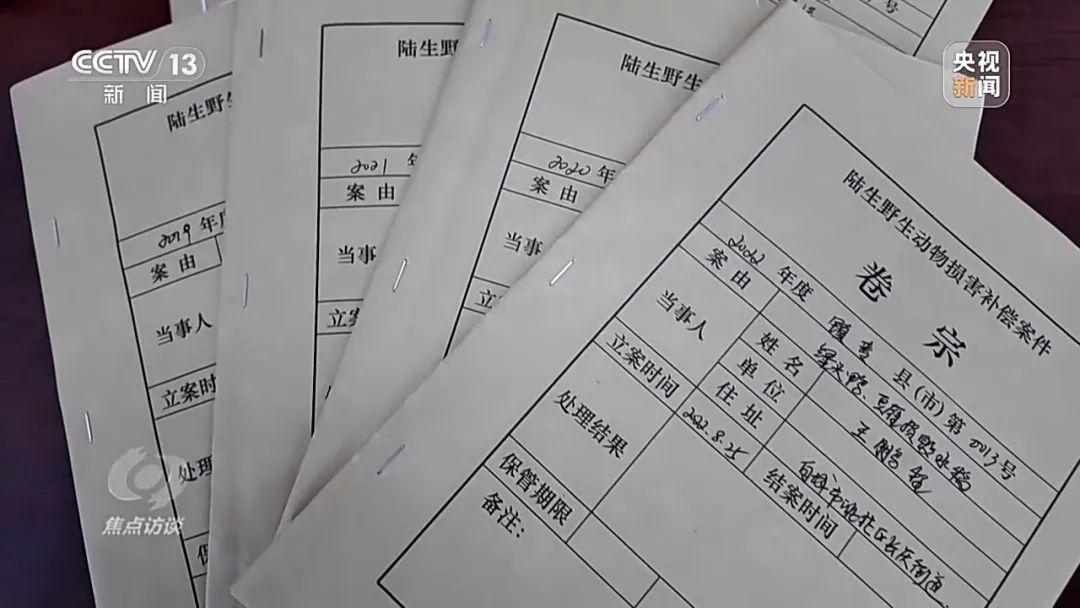 CCTV 13
新闻
央视
新闻
陆生野生
2019 年度
案由
当事人
立案时
处理
保
陆生野生
2021 年
案由
当事
立案
陆生野生
2020 年
案由
当事
立
号
陆生野生动物损害补偿案件
卷宗
2022 年度
县(市)第 0013号
案由
当事人
姓名
单位
住址
立案时间
2022.8.25
结案时间
处理结果
保管期限
备注:
焦点访谈